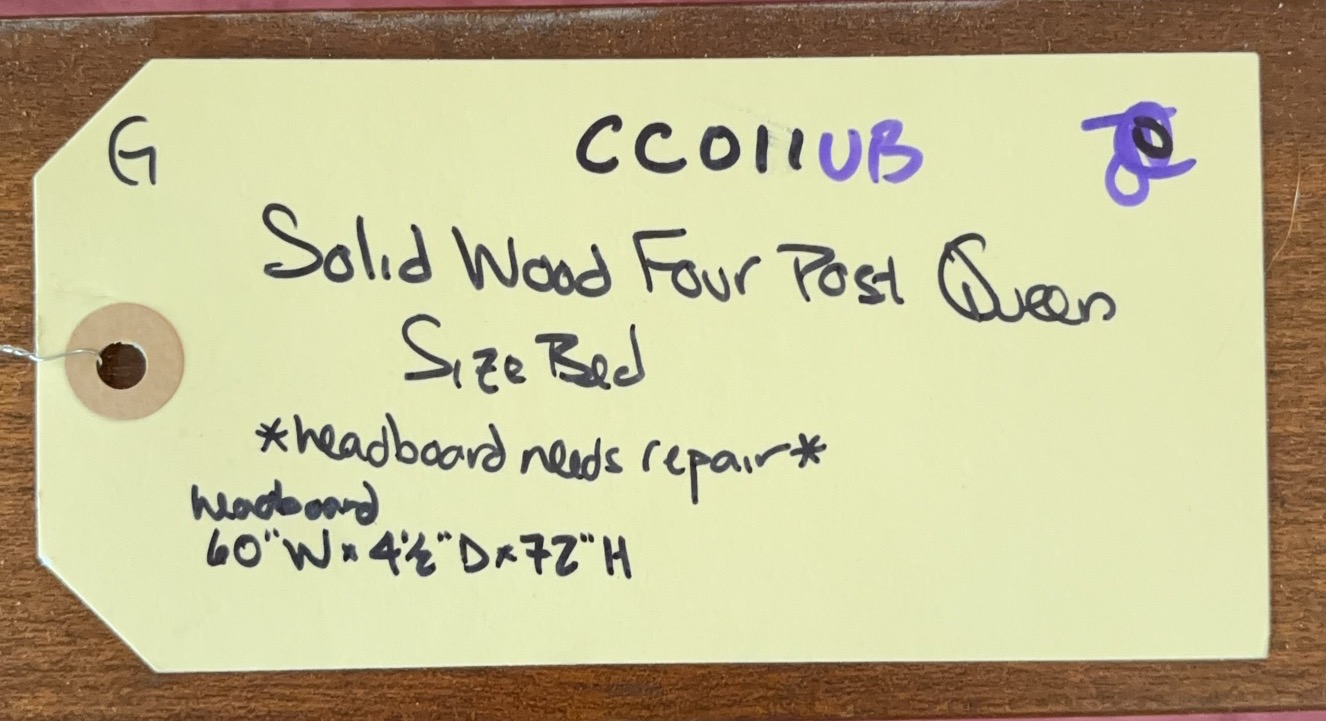 G CC011UB
Solid Wood Four Post Queen
Size Bed
*headboard needs repair*
headboard
60"W x 4½"D x 72"H